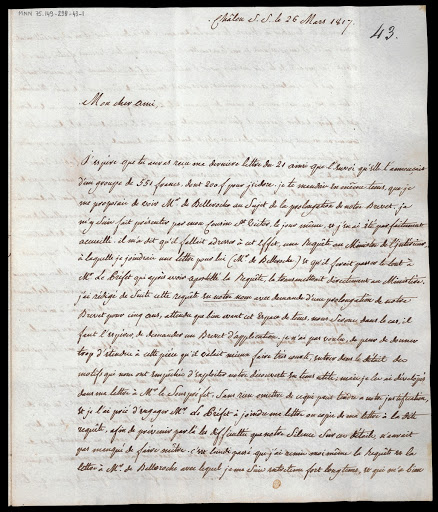 MNN 75.149-298-43-1
Châlon S. S. le 26 Mars 1817.
43.
Mon cher ami,
J'espère que tu auras reçu ma dernière lettre du 21 ainsi que l'envoi qu'elle t'annonçait
d'un groupe de 551 francs, dont 200 f pour isidore. je te mandais en même tems, que je
me proposais de voir Mr. de Belleroche au Sujet de la prolongation de notre Brevet. je
m'y suis fait présenter par mon Cousin St Victor, le jour même, et j'en ai été parfaitement
accueilli. il m'a dit qu'il fallait adresser à cet effet, une Requête au Ministre de l'intérieur,
à laquelle je joindrais une lettre pour lui (Mr. de Belleroche) et qu'il ferait passer le tout à
Mr. le Préfet qui après avoir apostillé la Requête, la transmettrait directement au Ministère.
j'ai rédigé de Suite cette requête en notre nom avec demande d'une prolongation de notre
Brevet pour cinq ans, attendu que bien avant cet espace de tems, nous Serons dans le cas, il
faut l'espérer, de demander un Brevet d'application. je n'ai pas voulu, de peur de donner
trop d'étendue à cette pièce qu'il valait mieux faire très courte, entrer dans le détail des
motifs qui nous ont empêchés d'exploiter notre découverte en tems utile; mais je les ai développés
dans une lettre à Mr. le Sous préfet, Sans rien omettre de ce qui peut servir à notre justification;
et je l'ai prié d'engager Mr. le Préfet à joindre ma lettre ou copie de ma lettre à la dite
requête, afin de prévenir par là les difficultés que notre Silence Sur ces détails, n'aurait
pas manqué de faire naître. c'est lundi passé que j'ai remis moi même la Requête et la
lettre à Mr. de Belleroche avec lequel je me suis entretenu fort longtems, et qui m'a bien